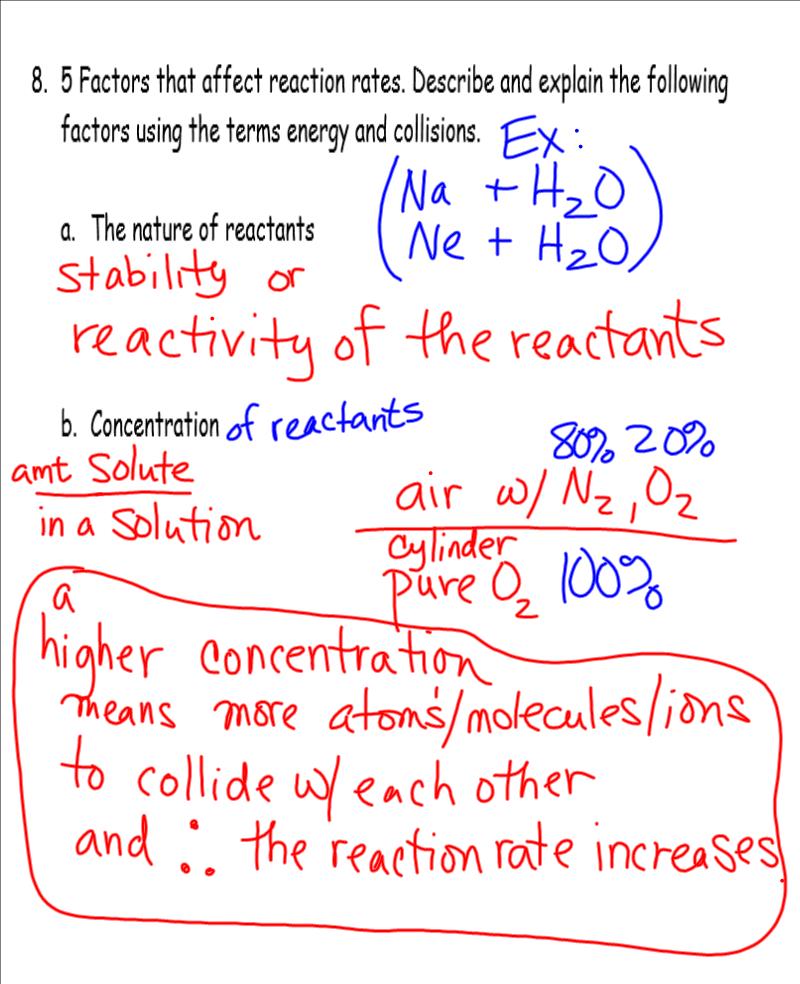 8. 5 Factors that affect reaction rates. Describe and explain the following
factors using the terms energy and collisions. Ex:
(Na + H₂O
Ne + H₂O)
a. The nature of reactants
stability or
reactivity of the reactants
b. Concentration of reactants
80% 20%
amt Solute
in a Solution
air w/ N₂, O₂
cylinder
pure O₂ 100%
a
higher concentration
means more atoms/molecules/ions
to collide w/ each other
and ∴ the reaction rate increases